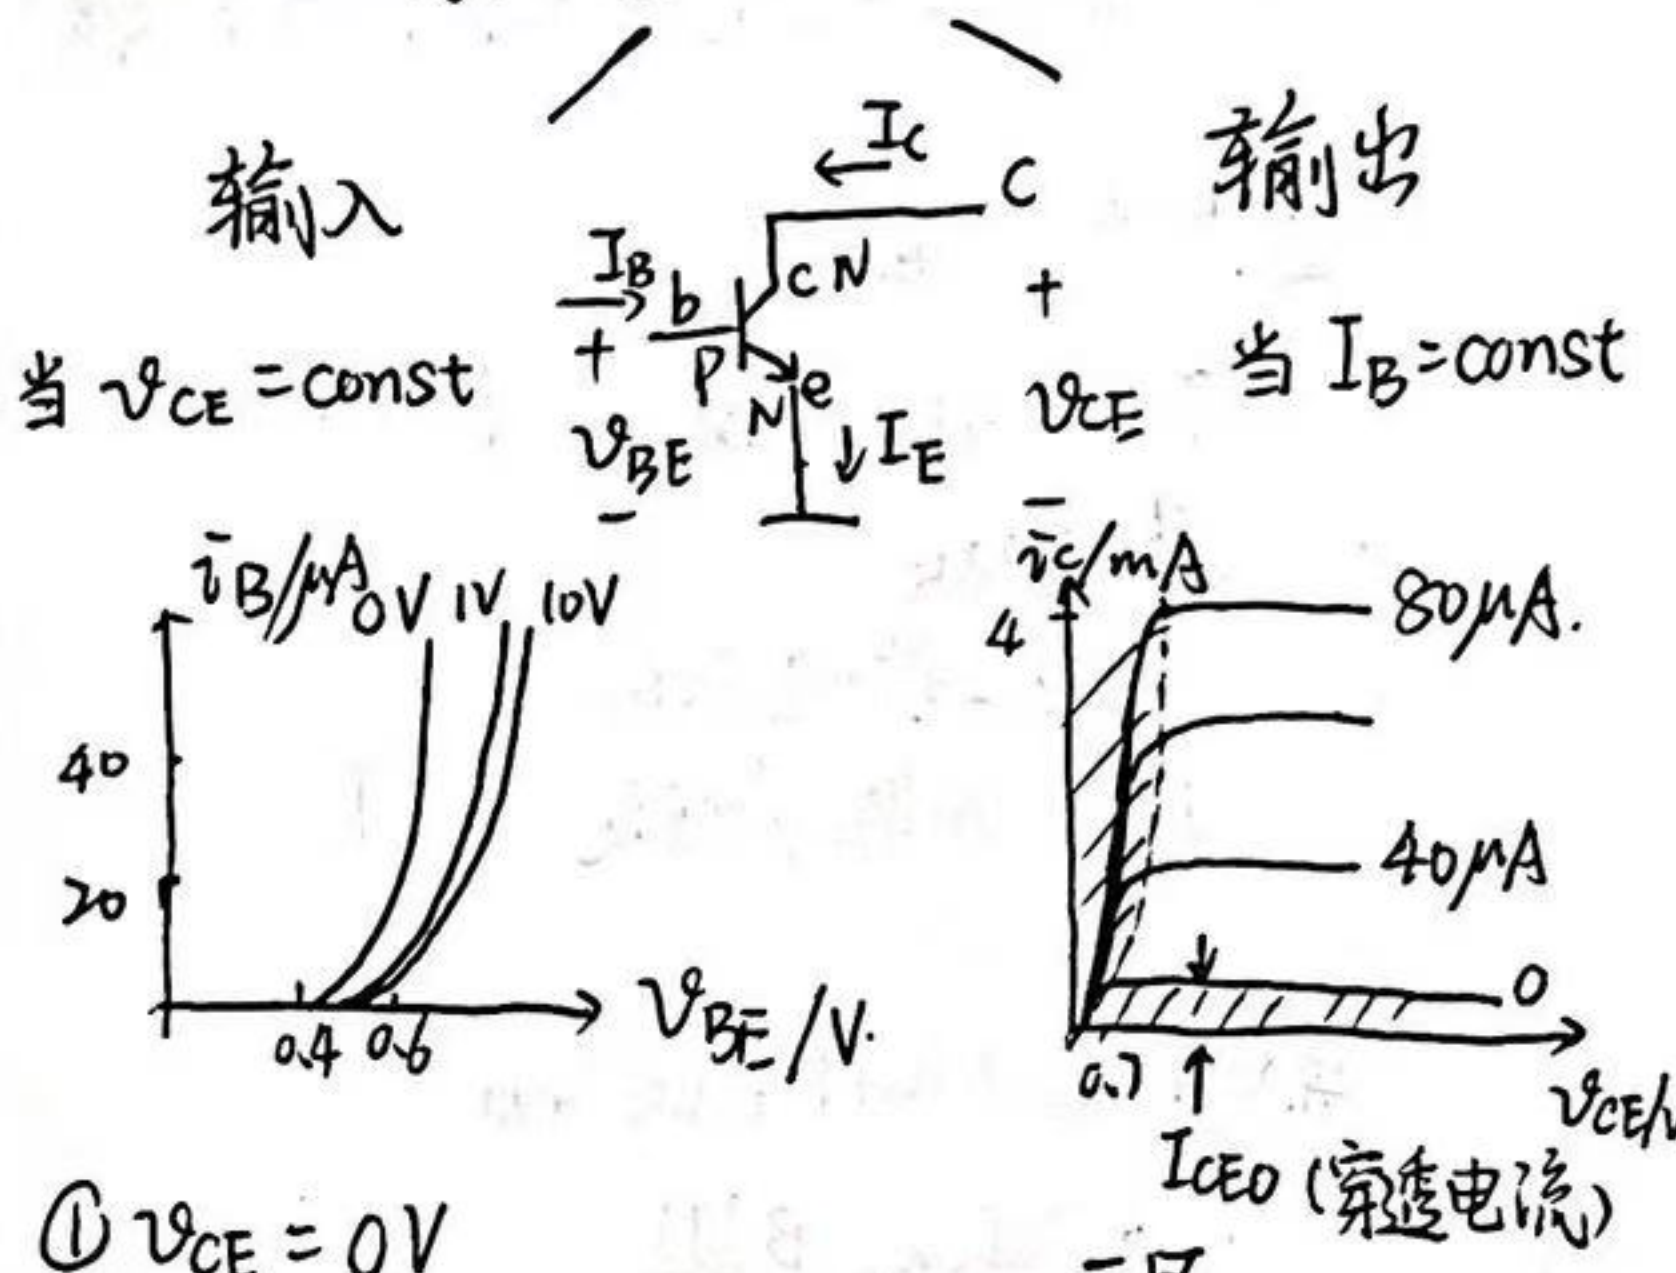 输入
当 v_CE = const
I_C
C
I_B
b
c N
+
P
N e
v_BE
-
I_E
输出
+
v_CE
-
当 I_B = const
i_B/μA
0V 1V 10V
40
20
0.4 0.6
v_BE/V.
i_C/mA
4
80μA.
40μA
0
0.7
v_CE/V
I_CEO (穿透电流)
① v_CE = 0V